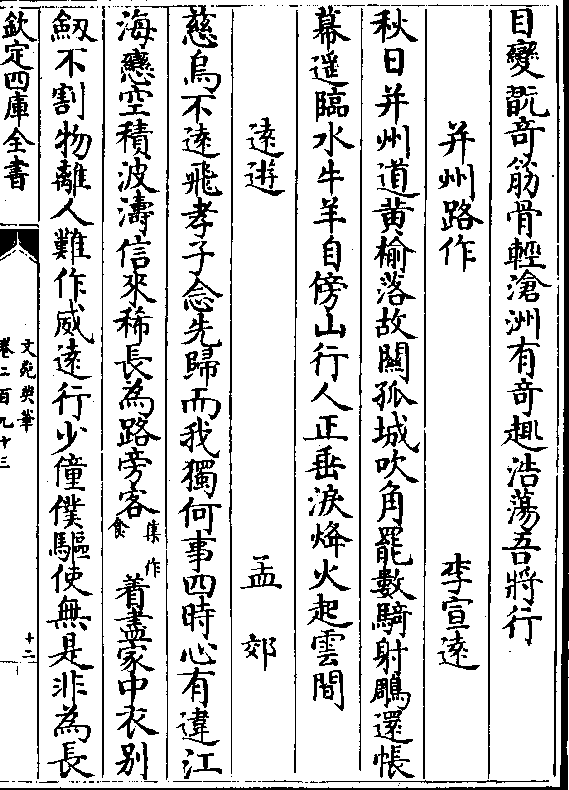 目變翫奇筋骨輕滄洲有奇趣浩蕩吾將行
并州路作 李宣逺
秋日并州道黃榆落故關孤城吹角罷數騎射鵰還帳
幕遥臨水牛羊自傍山行人正垂淚烽火起雲間
逺遊 孟郊
慈烏不逺飛孝子念先歸而我獨何事四時心有違江
海戀空積波濤信來稀長為路旁客集作食着盡家中衣别
劔不割物離人難作威逺行少僮僕驅使無是非為長
欽定四庫全書
文苑英華
卷二百九十三
十二